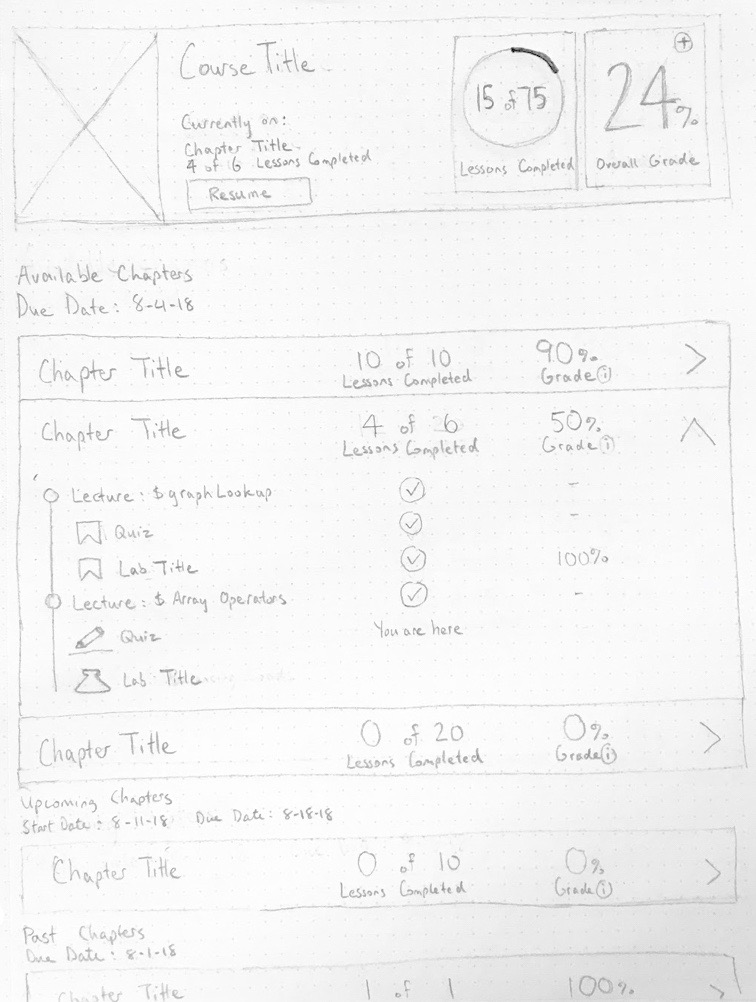 Course Title
Currently on:
Chapter Title
4 of 6 Lessons Completed
Resume
15 of 75
Lessons Completed
24%
Overall Grade
Available Chapters
Due Date: 8-4-18
Chapter Title
10 of 10
Lessons Completed
90%
Grade i
Chapter Title
4 of 6
Lessons Completed
50%
Grade i
Lecture: $graphLookup
-
Quiz
-
Lab Title
100%
Lecture: $ Array Operators
-
Quiz
You are here
Lab Title
Chapter Title
0 of 20
Lessons Completed
0%
Grade i
Upcoming Chapters
Start Date: 8-11-18 Due Date: 8-18-18
Chapter Title
0 of 10
Lessons Completed
0%
Grade i
Past Chapters
Due Date: 8-1-18
Chapter Title
1 of 1
100%